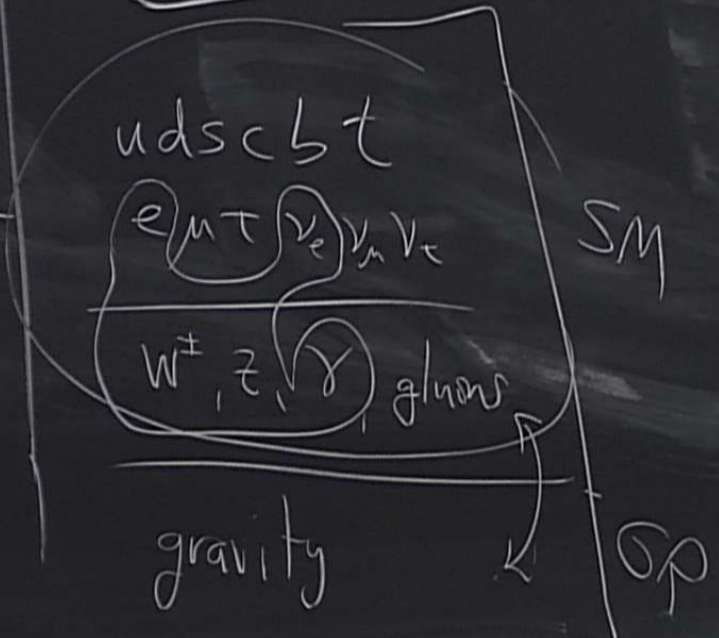 u d s c b t
e μ τ ν_e ν_μ ν_τ
SM
W^±, Z, γ, gluons
gravity
GR